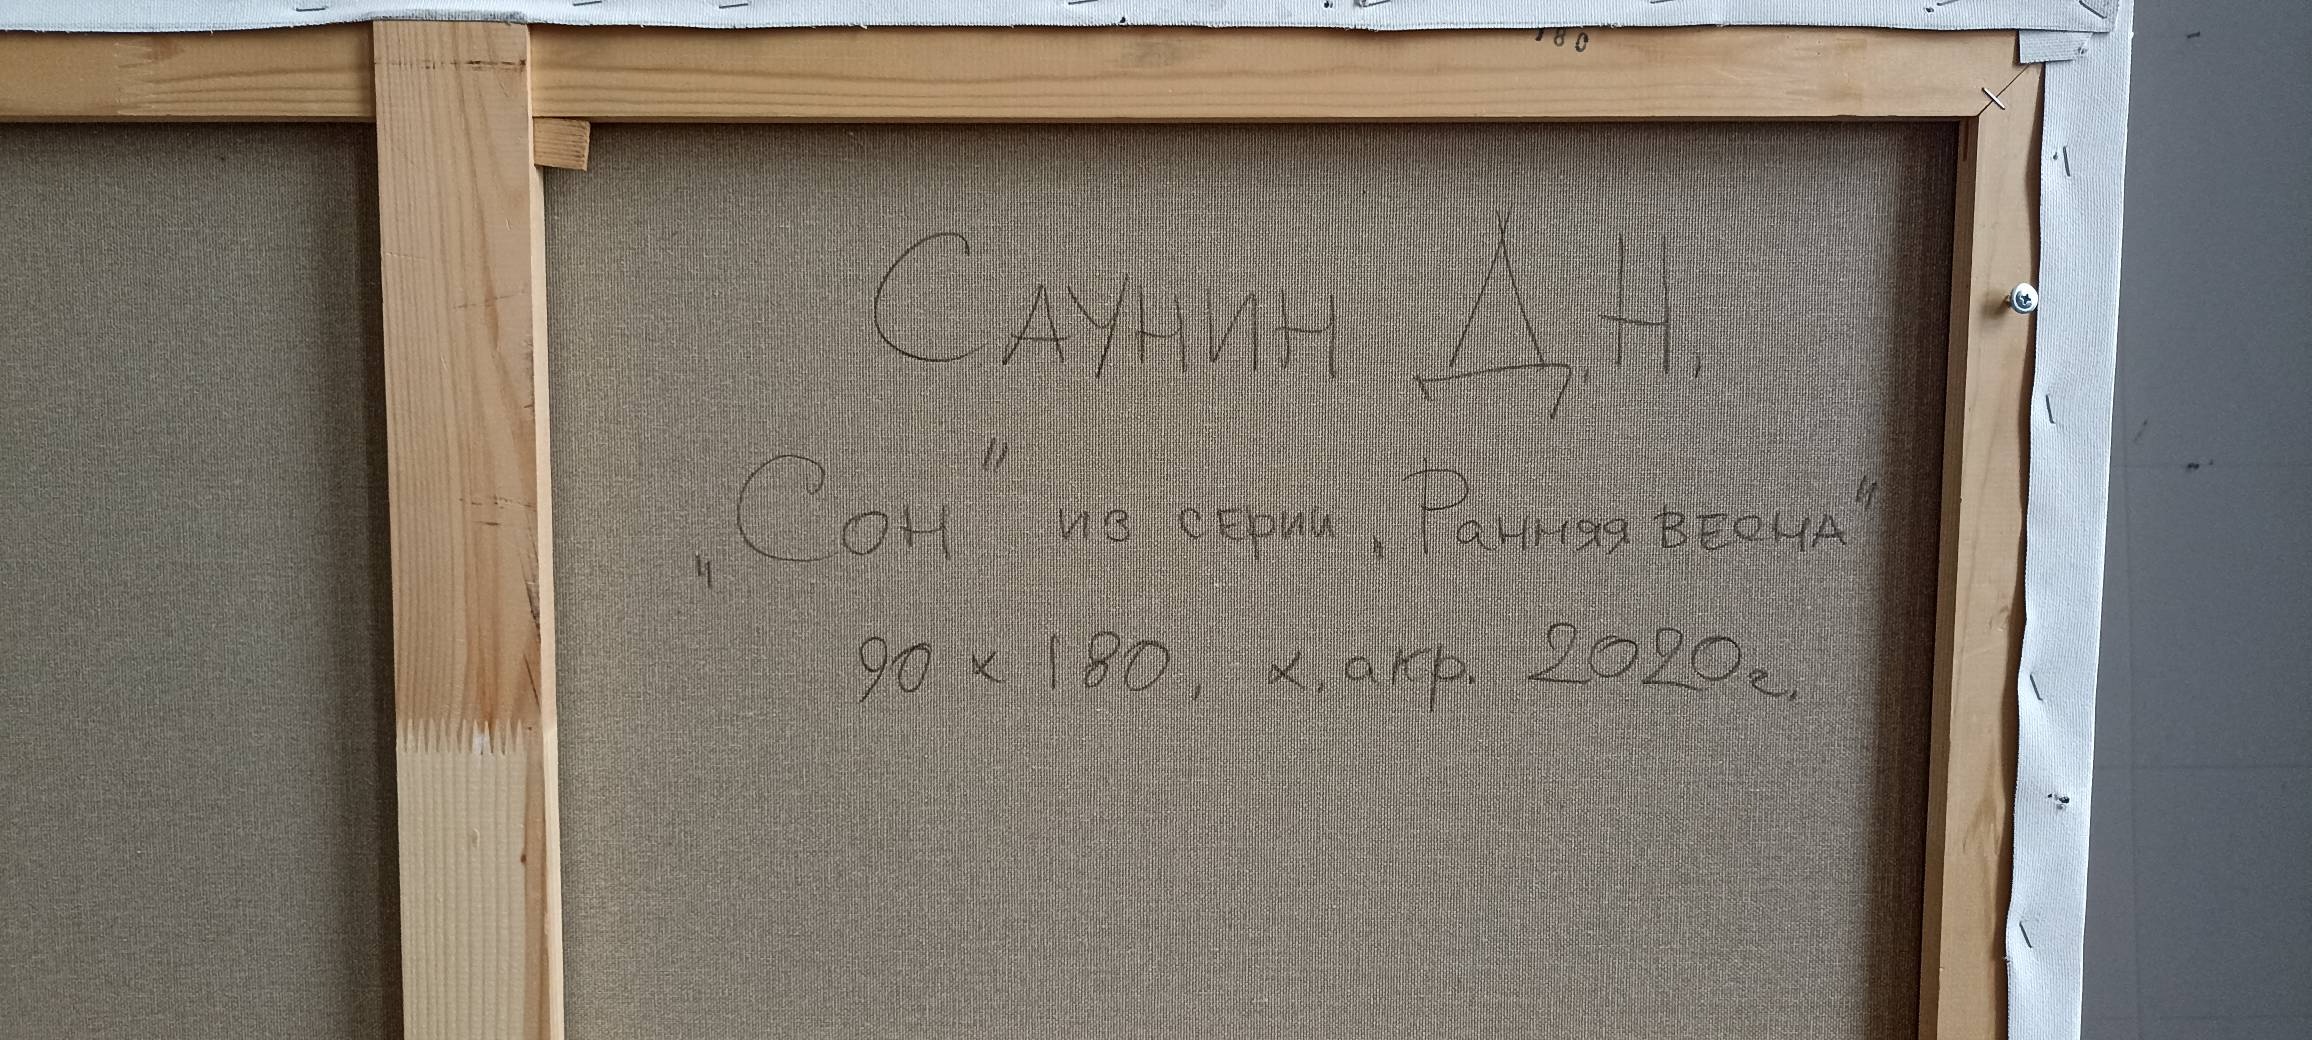 180
Саунин Д.Н.
„Сон" из серии „Ранняя весна"
90 х 180, х. акр. 2020г.